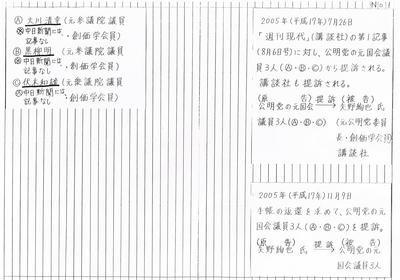 No.1
Ⓐ 大川清幸 (元参議院議員
※中日新聞には
記事なし
・創価学会員)
Ⓑ 黒柳明 (元参議院議員
※中日新聞には
記事なし
・創価学会員)
Ⓒ 伏木和雄 (元衆議院議員
※中日新聞には
記事なし
・創価学会員)
2005年(平成17年)7月26日
「週刊現代」(講談社)の第1記事
(8月6日号)に対し、公明党の元国会議
員3人(Ⓐ・Ⓑ・Ⓒ)から提訴される。
講談社も提訴される。
(原 告) 提訴 (被 告)
公明党の元国会 → 矢野絢也 氏
議員3人(Ⓐ・Ⓑ・Ⓒ) (元公明党委員
長・創価学会員)
講談社
2005年(平成17年)11月9日
手帳の返還を求めて、公明党の元
国会議員3人(Ⓐ・Ⓑ・Ⓒ)を提訴。
(原 告) 提訴 (被 告)
矢野絢也 氏 → 公明党の元
国会議員3人